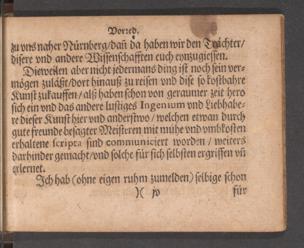 Vorred.
zu vns naher Nürnberg/dañ da haben wir den Trächter/
disere vnd andere Wissenschafften euch einzugiessen.
Dieweilen aber nicht jedermans ding ist noch sein ver-
mögen zuläßt/dort hinauß zu reisen vnd dise so kostbahre
Kunst zukauffen/alß haben schon von geraumer zeit hero
sich ein vnd das andere lustiges Ingenium vnd Liebhabe-
re dieser Kunst hier vnd anderstwo/welchen etwan durch
gute freunde besagter Meisteren mit mühe vnd vnbkosten
erhaltene scripta sind communiciert worden/weiters
darhinder gemacht/vnd solche für sich selbsten ergriffen vñ
erlernet.
Ich hab (ohne eigen ruhm zumelden) selbige schon
)( für